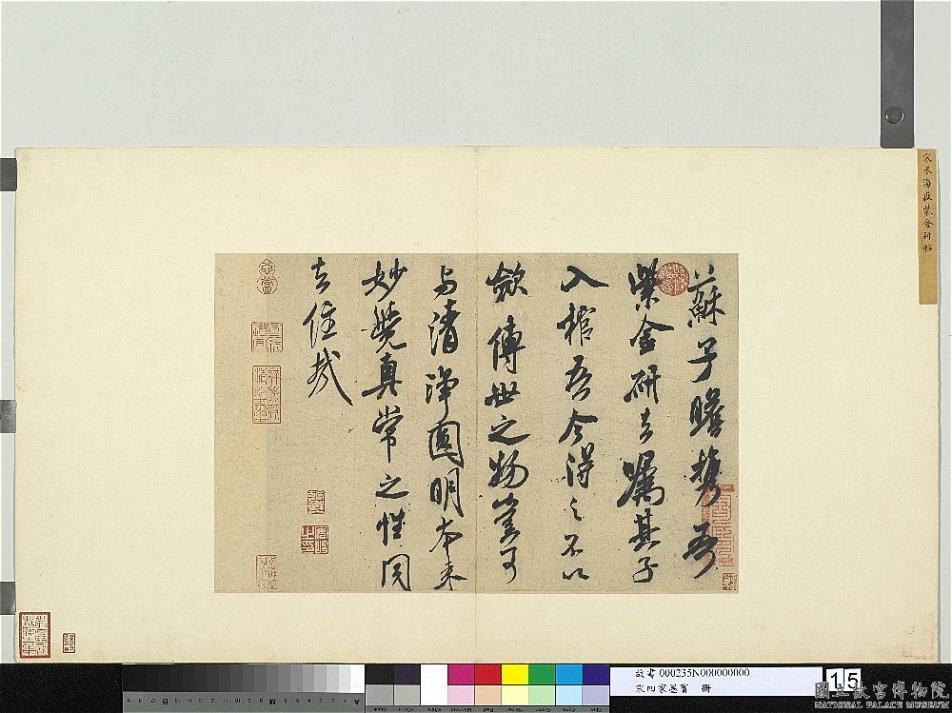 蘇子瞻携吾
紫金研去嘱其子
入棺吾今得之不以
斂傳世之物豈可
与清淨圓明本来
妙覺真常之性同
去住哉
宋米海嶽紫金研帖
故書000235N000000000
宋四家墨寶 冊
15
國立故宮博物院
NATIONAL PALACE MUSEUM